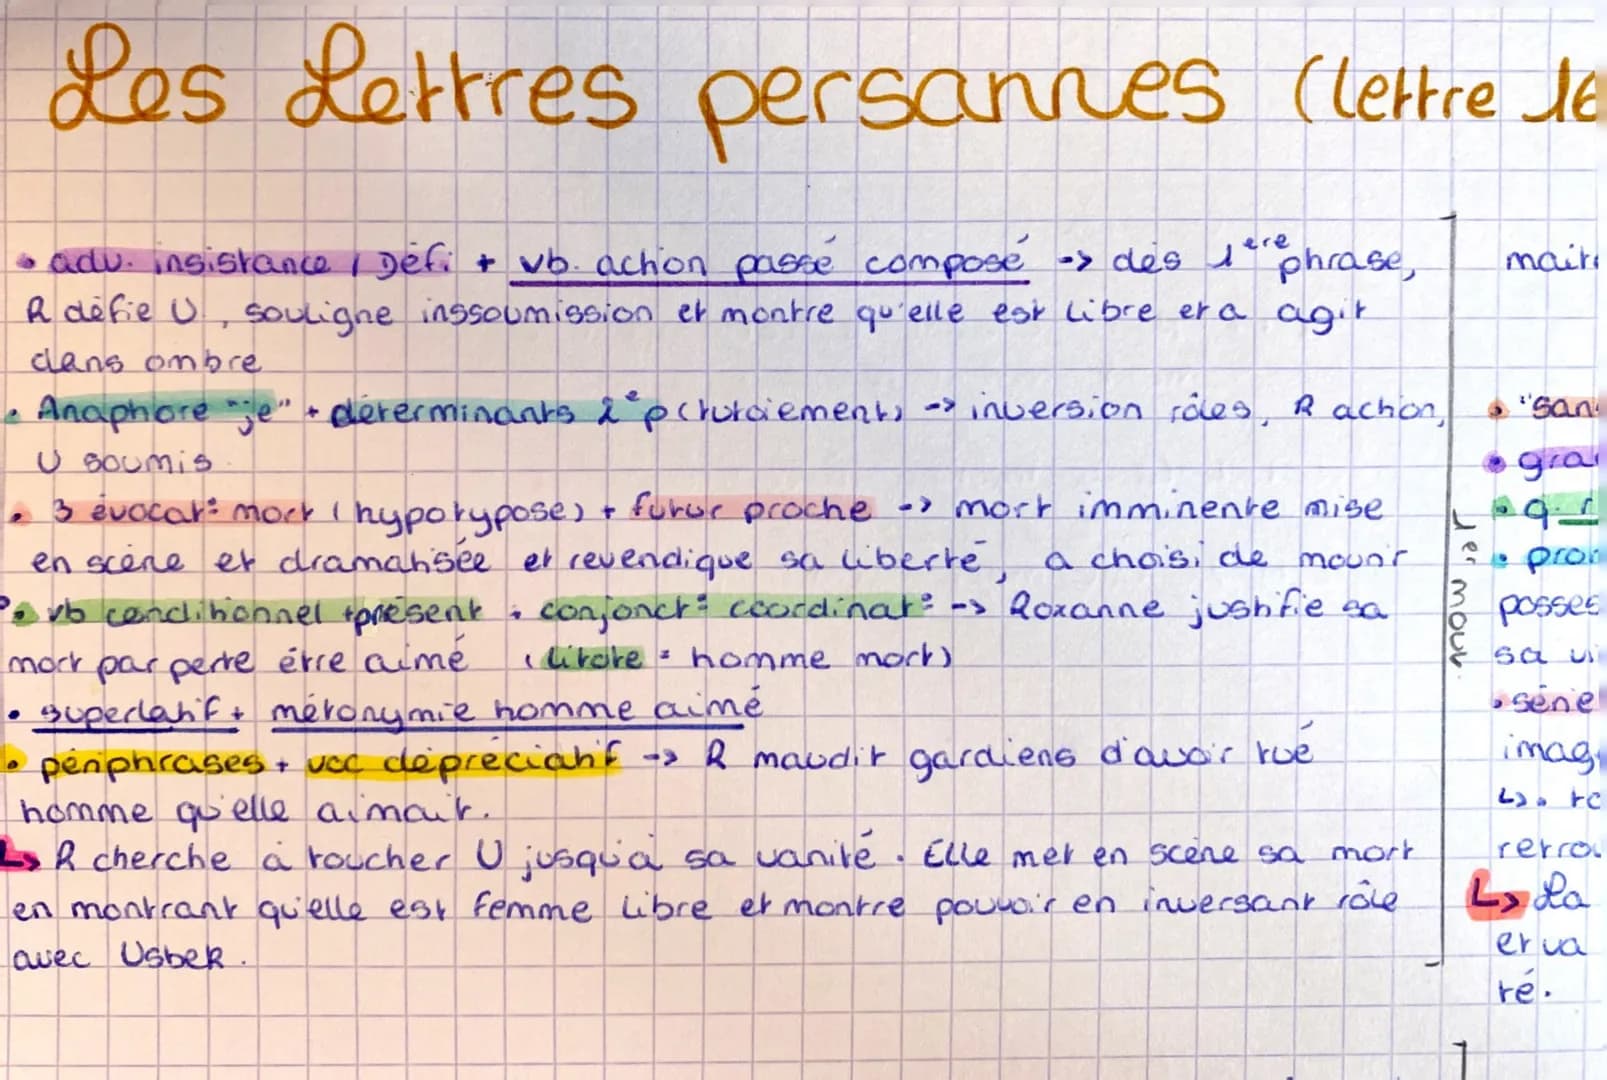 Les Lettres persannes (lettre 16
• adv. insistance / Défi + vb. action passé composé -> dès 1ere phrase,
R défie U., souligne inssoumission et montre qu'elle est libre et a agit
dans ombre
• Anaphore "je" + déterminants 2e p (tutoiement) -> inversion rôles, R action,
U soumis
• 3 évocat° mort (hypotypose) + futur proche -> mort imminente mise
en scène et dramatisée et revendique sa liberté, a choisi de mourir
• vb conditionnel + présent + conjonct° coordinat° -> Roxanne justifie sa
mort par perte être aimé (litote = homme mort)
• superlatif + métonymie homme aimé
• périphrases + voc dépréciatif -> R maudit gardiens d'avoir tué
homme qu'elle aimait.
↳ R cherche à toucher U jusqu'à sa vanité. Elle met en scène sa mort
en montrant qu'elle est femme libre et montre pouvoir en inversant rôle
avec Usbek.
1er mouv.
mait
• "san
• gra
• pron
posses
sa vi
• série
imag
retrou
↳ La
et va
té.